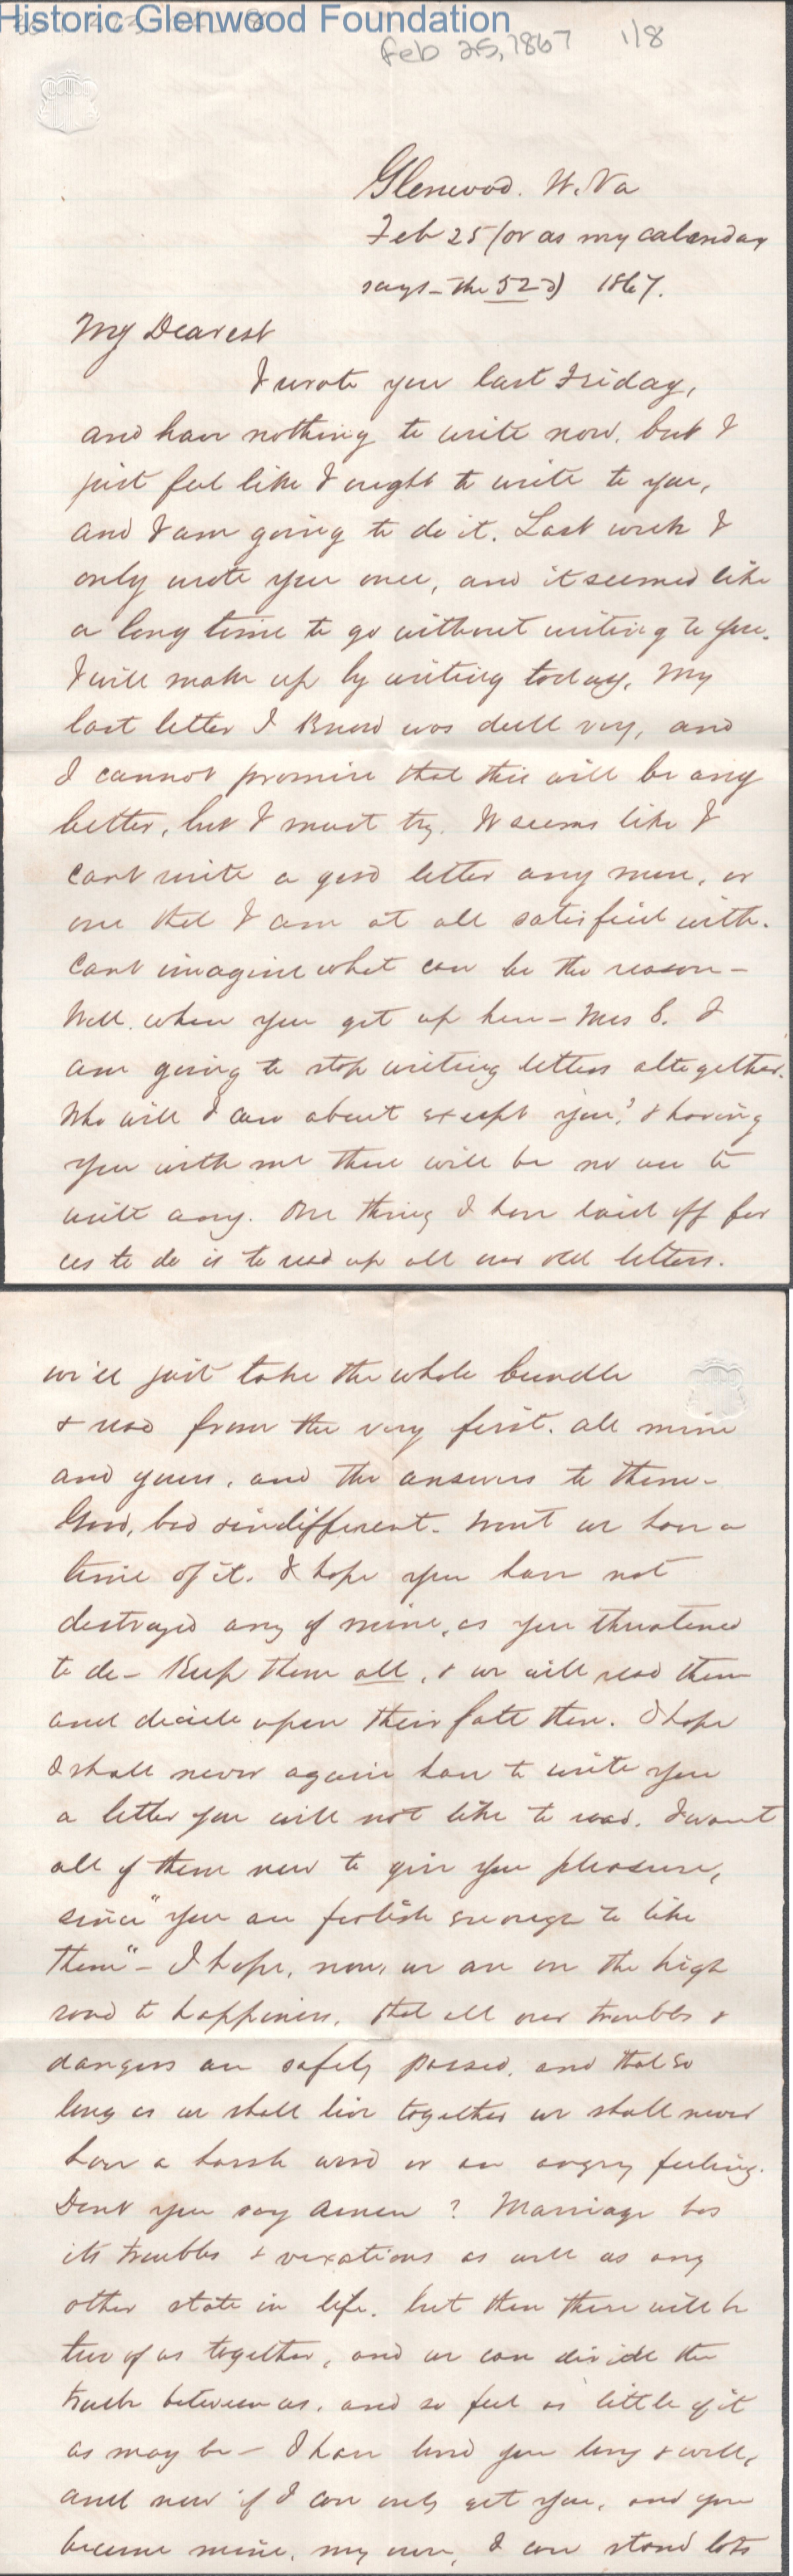 Historic Glenwood Foundation
Feb 25, 1867 1/8
Glenwood. W. Va
Feb 25 (or as my calendar
says - the 52d) 1867.
My Dearest
I wrote you last Friday,
and have nothing to write now, but I
just feel like I ought to write to you,
and I am going to do it. Last week I
only wrote you once, and it seemed like
a long time to go without writing to you.
I will make up by writing today. My
last letter I know was dull very, and
I cannot promise that this will be any
better, but I must try. It seems like I
cant write a good letter any more, or
one that I am at all satisfied with.
Cant imagine what can be the reason -
Well, when you get up here - Mrs S. I
am going to stop writing letters altogether.
Who will I care about except you? & having
you with me there will be no use to
write any. One thing I have laid off for
us to do is to read up all our old letters.
we'll just take the whole bundle
& read from the very first. all mine
and yours, and the answers to them -
Good, bad & indifferent. Wont we have a
time of it. I hope you have not
destroyed any of mine, as you threatened
to do - Keep them all, & we will read them
and decide upon their fate then. I hope
I shall never again have to write you
a letter you will not like to read. I want
all of them now to give you pleasure,
since "you are foolish enough to like
them" - I hope, now, we are on the high
road to happiness, that all our troubles &
dangers are safely passed, and that so
long as we shall live together we shall never
have a harsh word or an angry feeling.
Dont you say Amen? Marriage has
its troubles & vexations as well as any
other state in life, but then there will be
two of us together, and we can divide the
trouble between us, and so feel as little of it
as may be - I have loved you long & well,
and now if I can only get you, and you
become mine, my own, I can stand lots